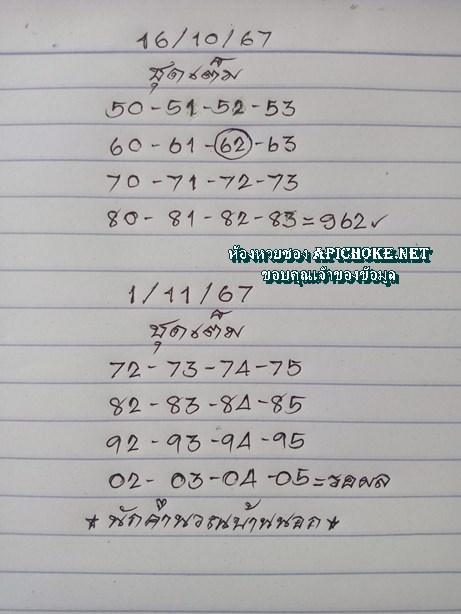 16/10/67
ชุดเต็ม
50-51-52-53
60-61-62-63
70-71-72-73
80-81-82-83=962✓
ห้องหวยซอง APICHOKE.NET
ขอบคุณเจ้าของข้อมูล
1/11/67
ชุดเต็ม
72-73-74-75
82-83-84-85
92-93-94-95
02-03-04-05=รอผล
★นักคำนวณบ้านนอก★